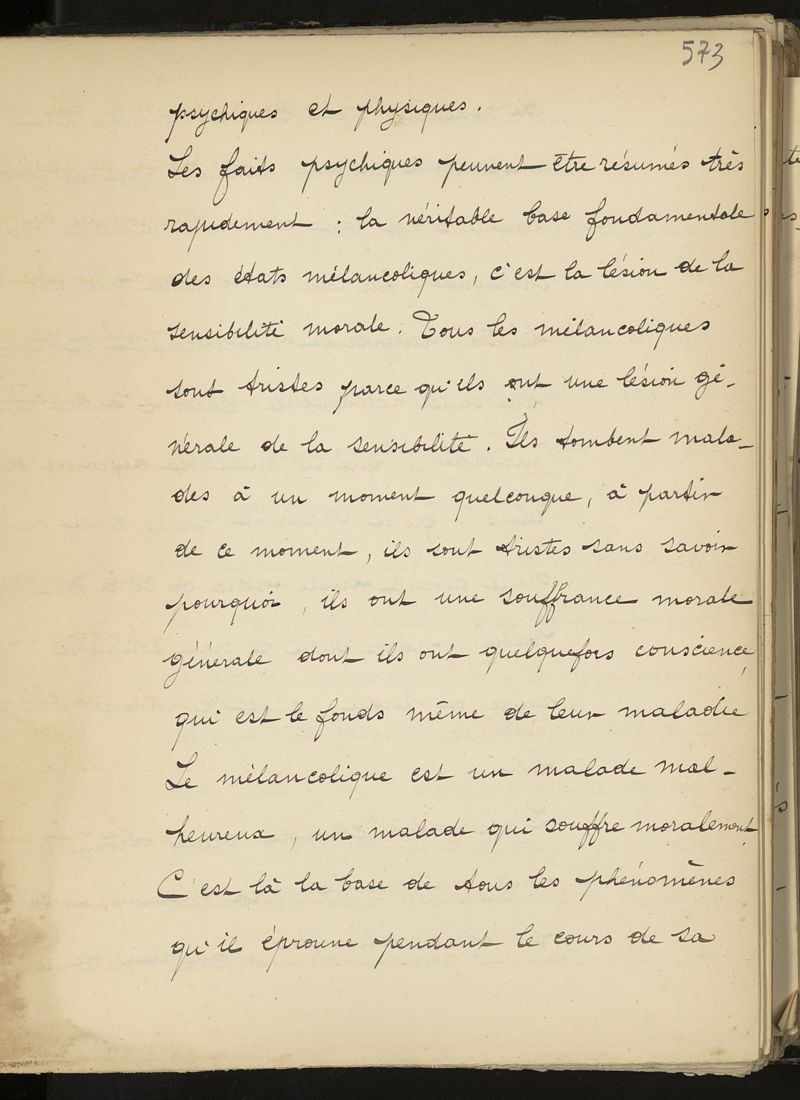 573
psychiques et physiques.
Les faits psychiques peuvent être résumés très
rapidement : la véritable base fondamentale
des états mélancoliques, c'est la lésion de la
sensibilité morale. Tous les mélancoliques
sont tristes parce qu'ils ont une lésion gé-
nérale de la sensibilité. Ils tombent mala-
des à un moment quelconque, à partir
de ce moment, ils sont tristes sans savoir
pourquoi, ils ont une souffrance morale
générale dont ils ont quelquefois conscience,
qui est le fonds même de leur maladie
Le mélancolique est un malade mal-
heureux, un malade qui souffre moralement.
C'est là la base de tous les phénomènes
qu'il éprouve pendant le cours de sa